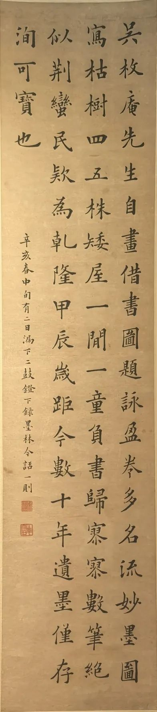 吳枚庵先生自畫借書圖題詠盈卷多名流妙墨圖
寫枯樹四五株矮屋一間一童負書歸寥寥數筆絕
似荆蠻民欵為乹隆甲辰歲距今數十年遺墨僅存
洵可寶也
辛亥春中旬有二日漏下二鼓鐙下錄墨林今話一則